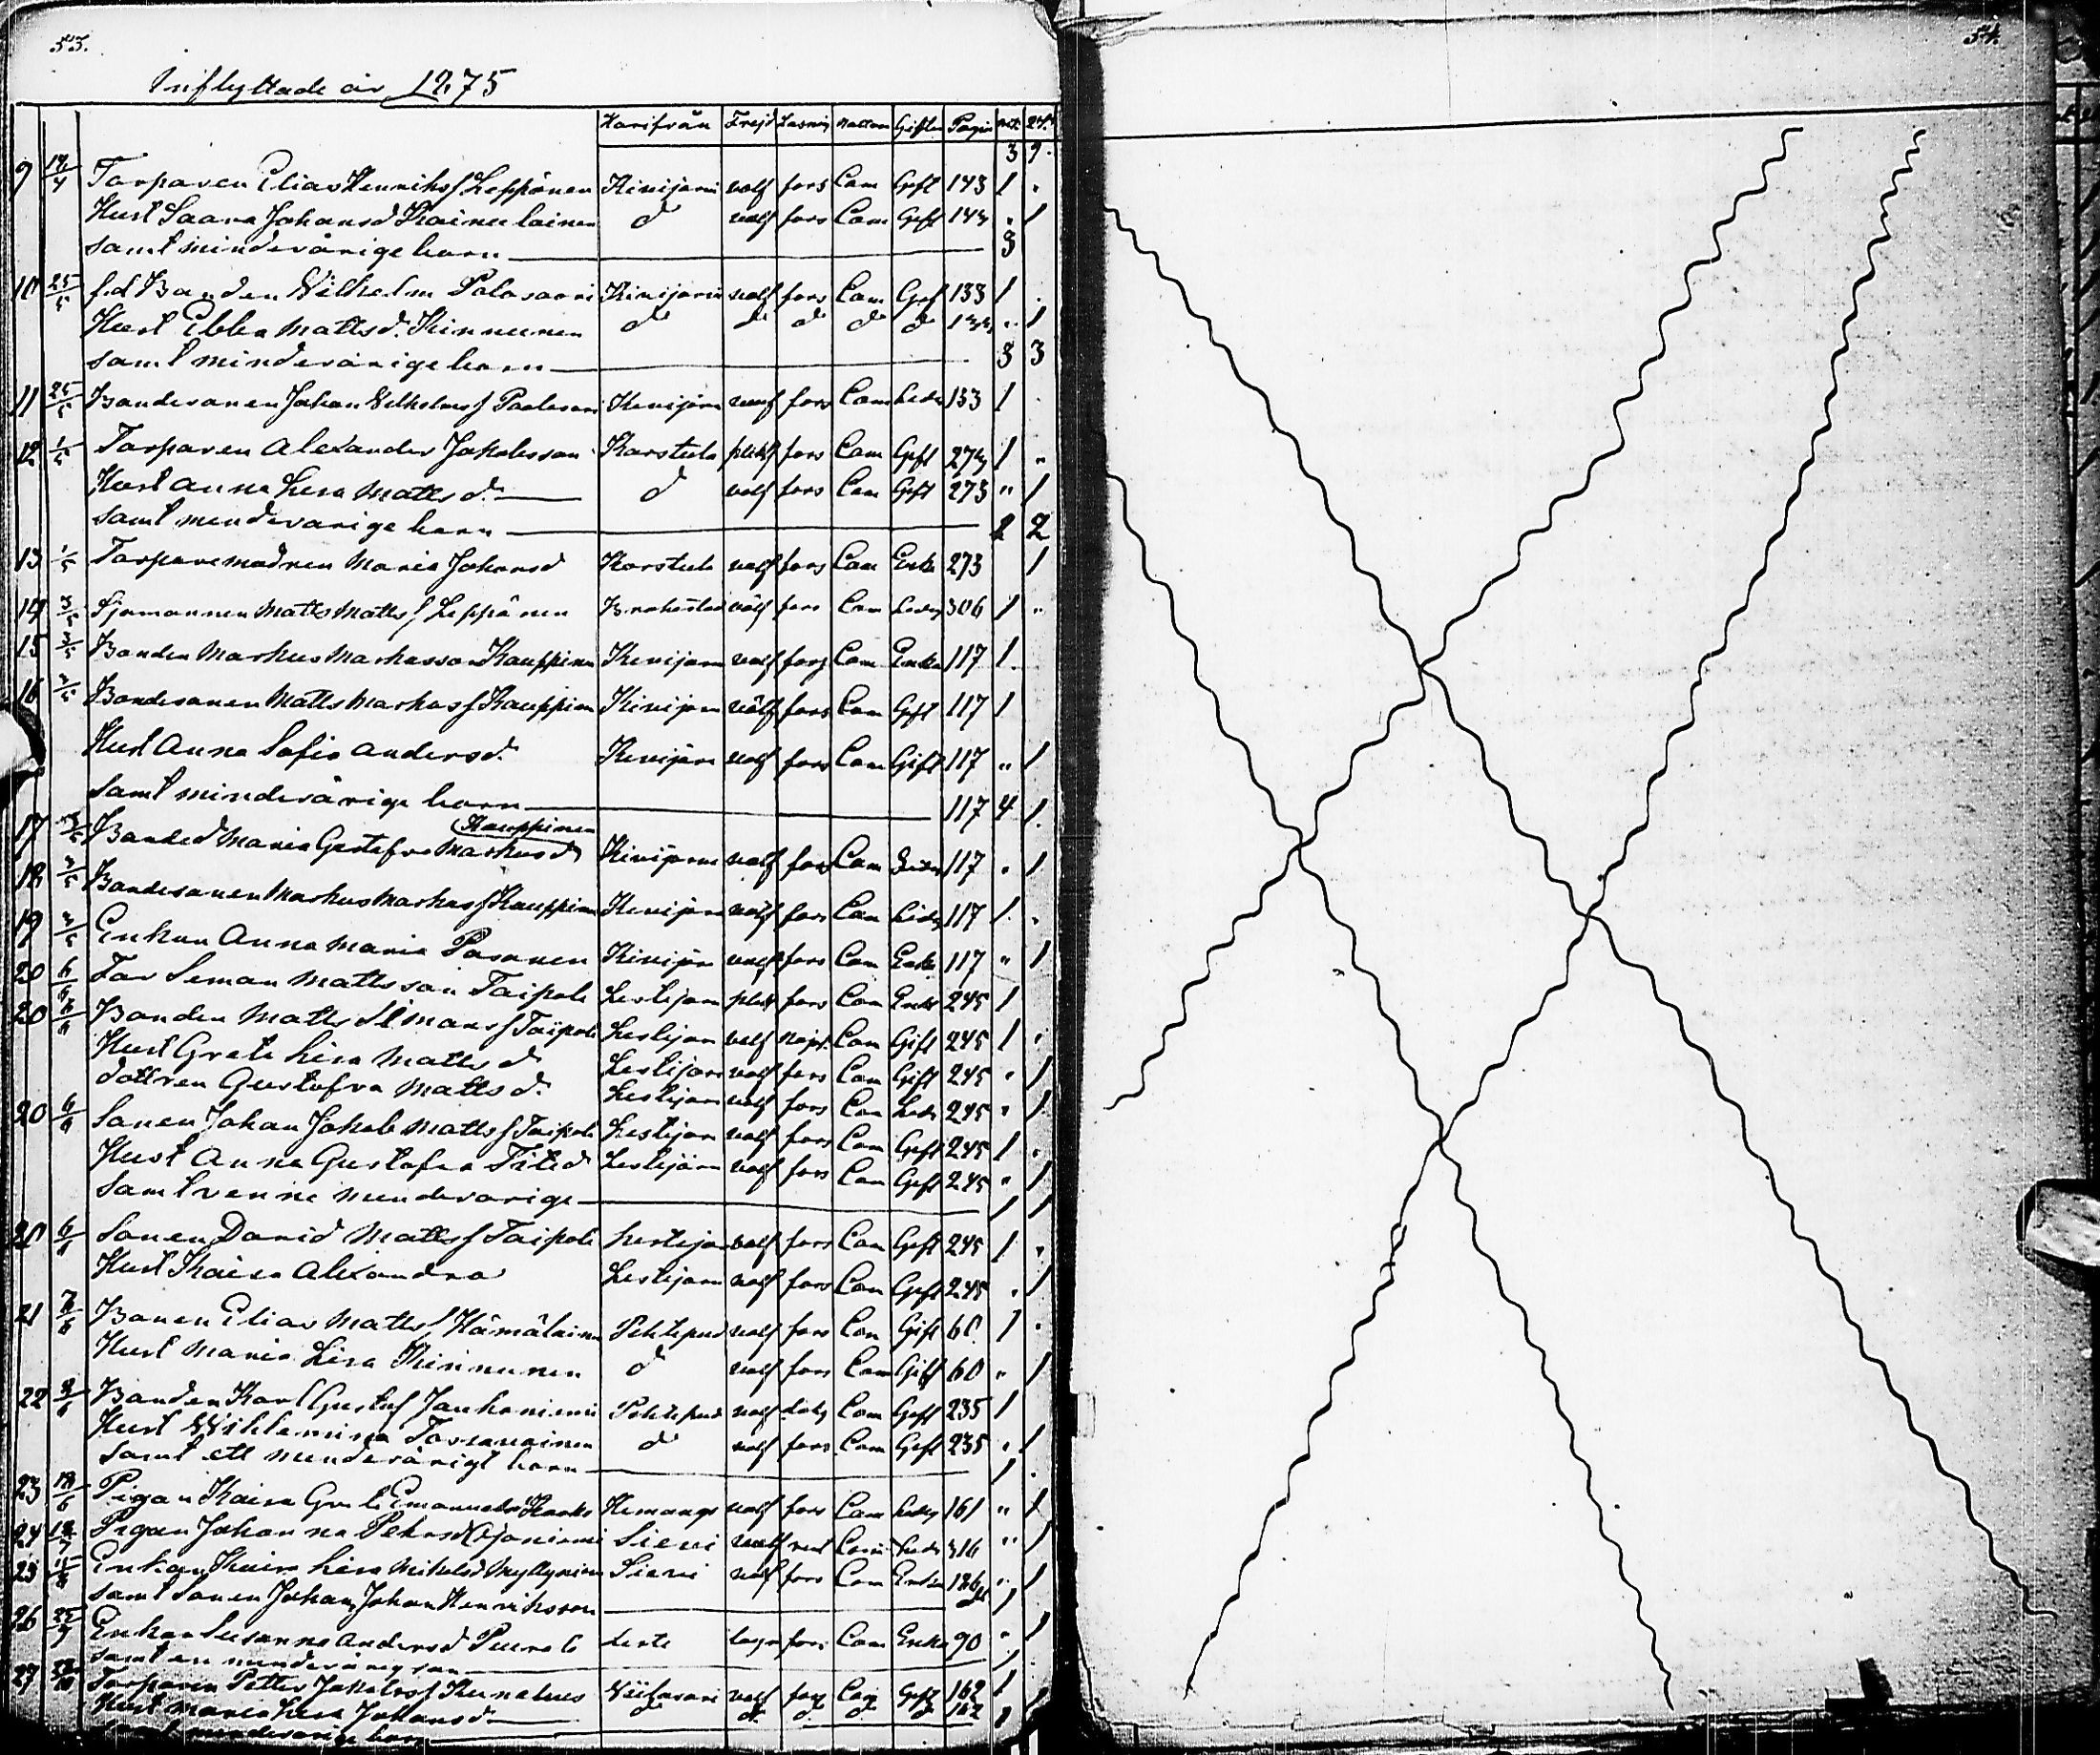 53.
54.
Inflyttade år 1875
Harifrån Frejd Läsning Nattv Gifter Pagin mk qk
3 9.
9 14/4 Torparen Elias Henriks f Leppänen Kivijärvi valf fors Com Gift 143 1 "
Hust Saara Johansd Kainulainen d valf fors Com Gift 143 " 1
samt minderårige barn 3
10 25/5 f.d Bonden Vilhelm Palosaari Kivijärvi valf fors Com Gift 133 1 .
Hust Ebba Mattsd. Kinnunen d d d d d 133 " 1
samt minderårige barn 3 3
11 25/5 Bondesonen Johan Vilhelms f Kivijärvi valf fors Com Ledig 133 1
12 1/5 Torparen Alexander Jakobsson Karstula fors Com Gift 273 1 "
Hust Anna Lisa Mattsd. d valf fors Com Gift 273 " 1
samt minderårige barn 2 2
13 1/5 Torparemodren Maria Johansd Karstula valf fors Com Enka 273 1
14 3/5 Sjömannen Matts Matts f Leppänen Brahestad välf fors Com Ledig 306 1 "
15 3/5 Bonden Markus Markusson Kauppinen Kivijärvi valf fors Com Enka 117 1
16 3/5 Bondesonen Matts Markus f Kauppinen Kivijärvi välf fors Com Gift 117 1
Hust Anna Sofia Andersd. Kivijärvi valf fors Com Gift 117 " 1
samt minderårige barn 117 4 1.
(Kauppinen
17 3/5 Bonded Maria Gustafva Markusd Kivijärvi valf fors Com Ledig 117 " 1
18 3/5 Bondesonen Markus Markus f Kauppinen Kivijärvi välf fors Com Ledig 117 1 "
19 3/5 Enkan Anna Maria Pasanen Kivijärvi valf fors Com Enka 117 " 1
20 6/6 Far Simon Mattsson Taipale Lestijärvi fors Com Enkl 245 1
20 6/6 Bonden Matts Simons f Taipale Lestijärvi valf nöjt. Com Gift 245 1 "
Hust Greta Lisa Mattsd Lestijärvi valf fors Com Gift 245 " 1
dottren Gustafva Mattsd. Lestijärvi valf fors Com Ledig 245 " 1
20 6/6 Sonen Johan Jakob Matts f Taipale Lestijärvi valf fors Com Gift 245 1 "
Hust Anna Gustafva Lestijärvi valf fors Com Gift 245 " 1
samt venne minderårige 1 1
20 6/6 Sonen David Matts f Taipale Lestijärvi valf fors Com Gift 245 1 "
Hust Kaisa Alexandra Lestijärvi valf fors Com Gift 245 " 1
21 7/6 Bonen Elias Matts f Hämälainen Pihtipud valf fors Com Gift 60 1 "
Hust Maria Lisa Kinnunen d valf fors Com Gift 60 " 1
22 9/6 Bonden Karl Gustaf Jauhoniemi Pihtipud valf Com Gift 235 1
Hust Vilhelmina d valf fors Com Gift 235 " 1
samt ett minderårigt barn 1
23 18/6 Pigan Kaisa Greta Emanuelsd Himango valf fors Com Ledig 161 " 1
24 12/7 Pigan Johanna Pehrsd Ojaniemi Sievi valf Com Ledig 316 " 1
25 11/8 Enkan Kaisa Lisa Mikelsd Myllyniemi Sievi valf fors Com Enka 126 " 1
samt sonen Johan Johan Henriksson 1
26 25/7 Enkan Susanna Andersd Purola Lesti fors Com Enka 90 " 1
samt en minderårig son 1
27 Torparen Petter Jakobs f Viitasaari valf Com Gift 162 1
Hust Maria Lisa Johansd d d d d d 162 1
samt minderårige barn